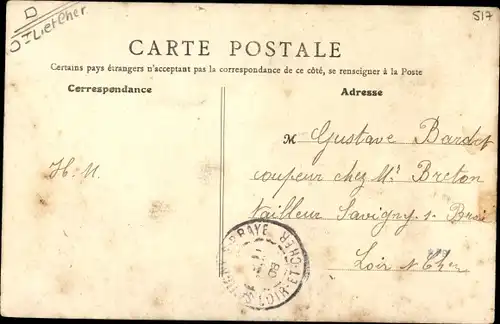 Loir et Cher
517
CARTE POSTALE
Certains pays étrangers n'acceptant pas la correspondance de ce côté, se renseigner à la Poste
Correspondance
Adresse
M Gustave Bardet
coupeur chez Mr Breton
H. M.
tailleur Savigny s. Brai
Loir & Cher
BRAYE
LOIR-ET-CHER
08